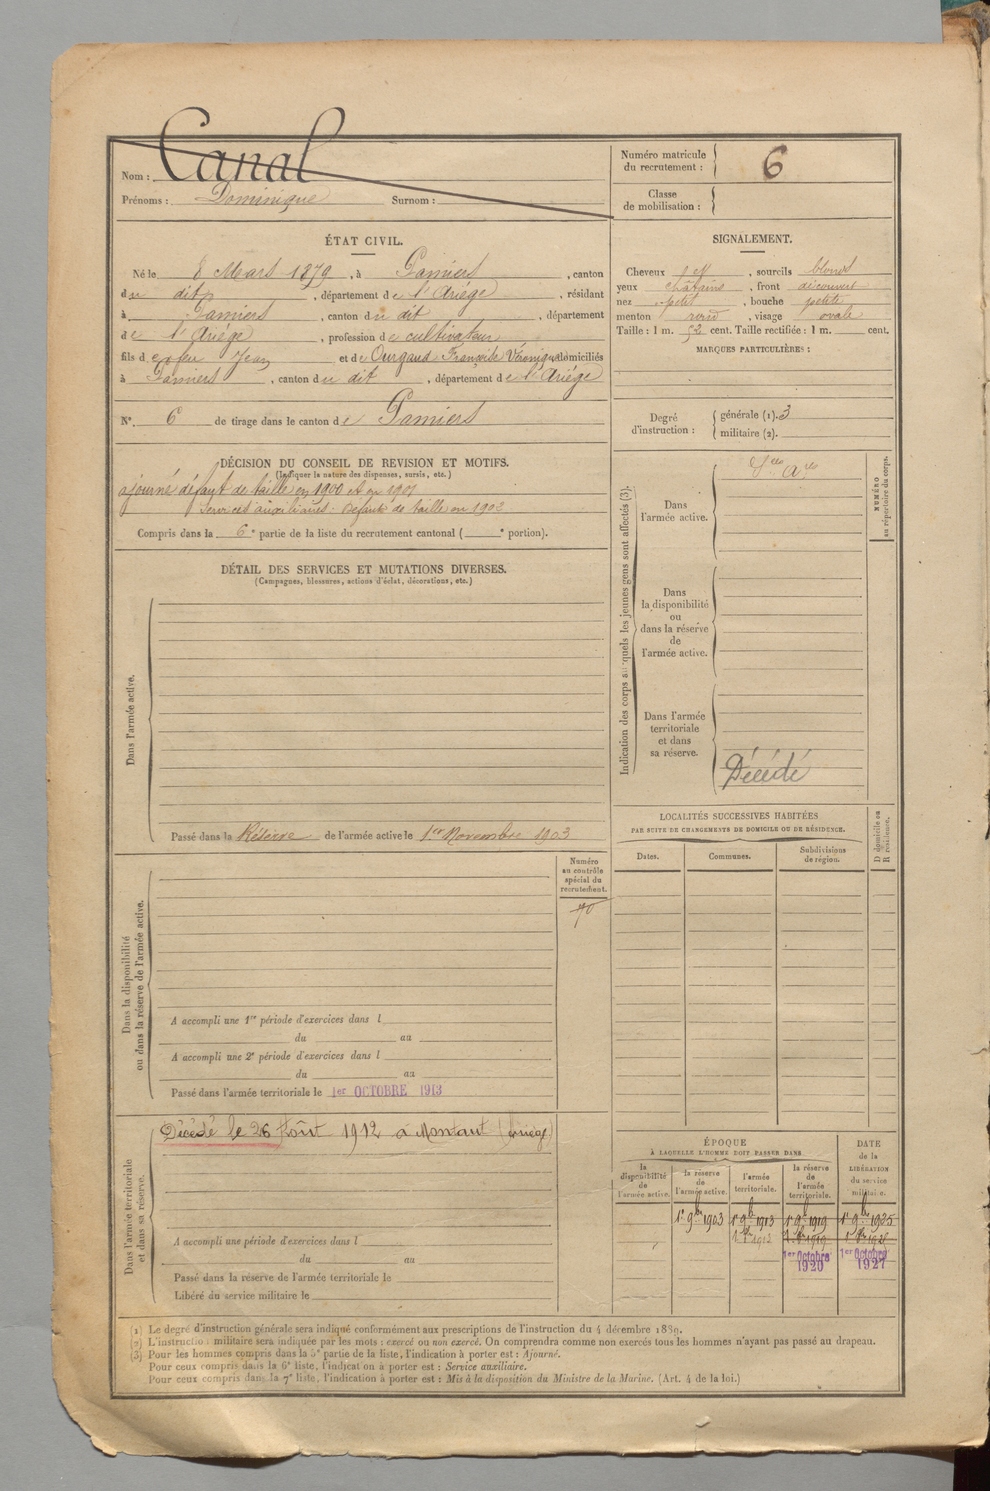 Nom : Canal
Prénoms : Dominique Surnom :
Numéro matricule du recrutement : 6
Classe de mobilisation :
ÉTAT CIVIL.
Né le 8 Mars 1879, à Pamiers, canton
du dit, département de l'Ariége, résidant
à Pamiers, canton du dit, département
de l'Ariége, profession de cultivateur
fils de feu Jean et de Ourgaud Françoise Véronique domiciliés
à Pamiers, canton du dit, département de l'Ariége
N° 6 de tirage dans le canton de Pamiers
DÉCISION DU CONSEIL DE REVISION ET MOTIFS.
(Indiquer la nature des dispenses, sursis, etc.)
ajourné défaut de taille en 1900 et en 1901
Services auxiliaires. Défaut de taille en 1902
Compris dans la 6e partie de la liste du recrutement cantonal ( e portion).
SIGNALEMENT.
Cheveux , sourcils blonds
yeux châtains, front découvert
nez petit, bouche petite
menton rond, visage ovale
Taille : 1 m. 52 cent. Taille rectifiée : 1 m. cent.
MARQUES PARTICULIÈRES :
Degré d'instruction : générale (1). 3
militaire (2).
DÉTAIL DES SERVICES ET MUTATIONS DIVERSES.
(Campagnes, blessures, actions d'éclat, décorations, etc.)
Dans l'armée active.
Passé dans la Réserve de l'armée active le 1er Novembre 1903
Indication des corps auxquels les jeunes gens sont affectés (3).
Dans l'armée active.
Sces Ares
Dans la disponibilité ou dans la réserve de l'armée active.
Dans l'armée territoriale et dans sa réserve.
Décédé
NUMÉRO au répertoire du corps.
LOCALITÉS SUCCESSIVES HABITÉES
PAR SUITE DE CHANGEMENTS DE DOMICILE OU DE RÉSIDENCE.
Dates. Communes. Subdivisions de région.
D domicile ou R résidence.
Numéro au contrôle spécial du recrutement.
Dans la disponibilité ou dans la réserve de l'armée active.
A accompli une 1re période d'exercices dans l
du au
A accompli une 2e période d'exercices dans l
du au
Passé dans l'armée territoriale le 1er OCTOBRE 1913
Dans l'armée territoriale et dans sa réserve.
Décédé le 26 Août 1912 à Montaut (Ariège)
A accompli une période d'exercices dans l
du au
Passé dans la réserve de l'armée territoriale le
Libéré du service militaire le
ÉPOQUE
À LAQUELLE L'HOMME DOIT PASSER DANS
la disponibilité de l'armée active.
la réserve de l'armée active.
l'armée territoriale.
la réserve de l'armée territoriale.
DATE de la LIBÉRATION du service militaire.
1r 9bre 1903 1r 9b 1913 1r 9b 1919 1r 9b 1925
1er Octobre 1920 1er Octobre 1927
(1) Le degré d'instruction générale sera indiqué conformément aux prescriptions de l'instruction du 4 décembre 1889.
(2) L'instruction militaire sera indiquée par les mots : exercé ou non exercé. On comprendra comme non exercés tous les hommes n'ayant pas passé au drapeau.
(3) Pour les hommes compris dans la 5e partie de la liste, l'indication à porter est : Ajourné.
Pour ceux compris dans la 6e liste, l'indication à porter est : Service auxiliaire.
Pour ceux compris dans la 7e liste, l'indication à porter est : Mis à la disposition du Ministre de la Marine. (Art. 4 de la loi.)